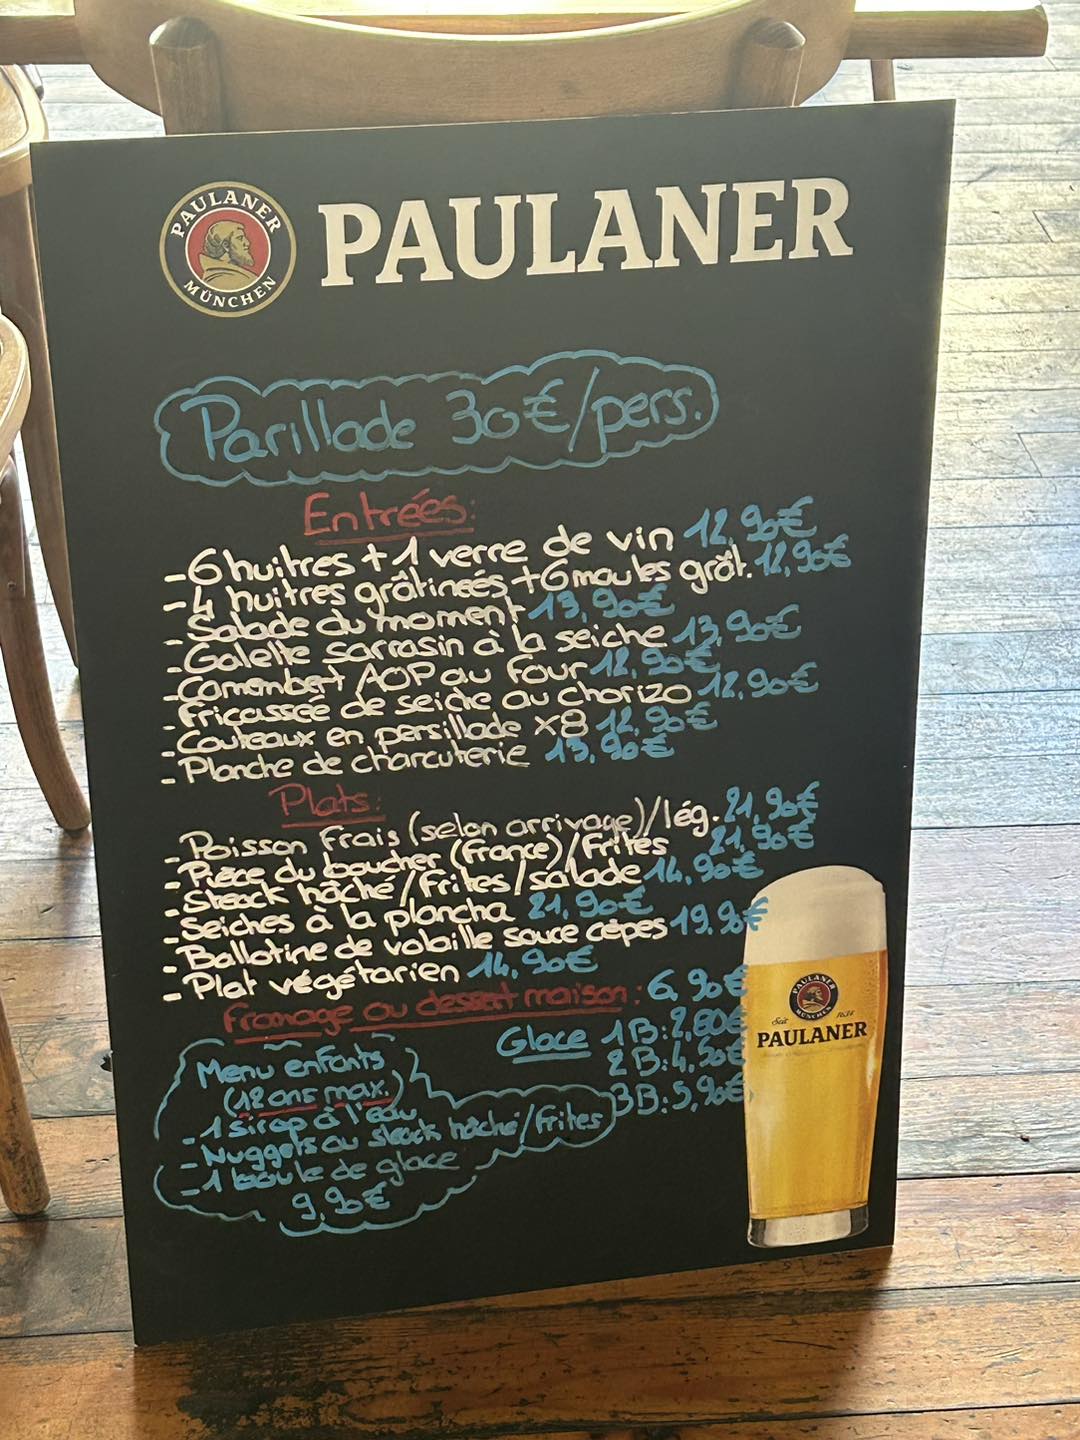 PAULANER
MÜNCHEN
PAULANER
Parillade 30€/pers.
Entrées:
- 6 huitres + 1 verre de vin 12,90€
- 4 huitres grâtineés + 6 moules grât. 12,90€
- Salade du moment 13,90€
- Galette sarrasin à la seiche 13,90€
- Camembert AOP au four 12,90€
- Fricassée de seiche au chorizo 12,90€
- Couteaux en persillade x8 12,90€
- Planche de charcuterie 13,90€
Plats:
- Poisson Frais (selon arrivage)/lég. 21,90€
- Pièce du boucher (France)/Frites 21,90€
- Steack hâché/Frites/salade 14,90€
- Seiches à la plancha 21,90€
- Ballotine de volaille sauce cèpes 19,90€
- Plat végétarien 14,90€
Fromage ou dessert maison: 6,90€
Glace 1B: 2,80€
2B: 4,50€
3B: 5,90€
Menu enfants
(12 ans max.)
- 1 sirop à l'eau
- Nuggets ou steack hâché/Frites
- 1 boule de glace
9,90€
PAULANER
MÜNCHEN
Seit 1634
PAULANER